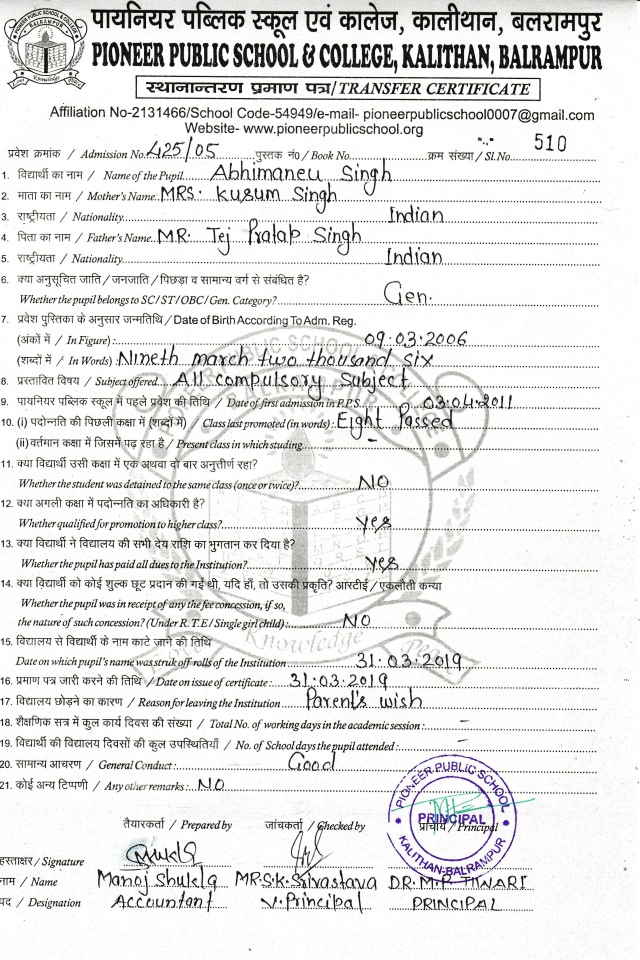 पायनियर पब्लिक स्कूल एवं कालेज, कालीथान, बलरामपुर
PIONEER PUBLIC SCHOOL & COLLEGE, KALITHAN, BALRAMPUR
स्थानान्तरण प्रमाण पत्र/TRANSFER CERTIFICATE
Affiliation No-2131466/School Code-54949/e-mail- pioneerpublicschool0007@gmail.com
Website- www.pioneerpublicschool.org
प्रवेश क्रमांक / Admission No. 425/05 पुस्तक नं0 / Book No. क्रम संख्या / Sl.No. 510
1. विद्यार्थी का नाम / Name of the Pupil Abhimaneu Singh
2. माता का नाम / Mother's Name MRS. Kusum Singh
3. राष्ट्रीयता / Nationality Indian
4. पिता का नाम / Father's Name MR. Tej Pratap Singh
5. राष्ट्रीयता / Nationality Indian
6. क्या अनुसूचित जाति / जनजाति / पिछड़ा व सामान्य वर्ग से संबंधित है?
Whether the pupil belongs to SC/ST/OBC/Gen. Category? Gen.
7. प्रवेश पुस्तिका के अनुसार जन्मतिथि / Date of Birth According To Adm. Reg.
(अंकों में / In Figure): 09.03.2006
(शब्दों में / In Words) Nineth march two thousand six
8. प्रस्तावित विषय / Subject offered All compulsory Subject
9. पायनियर पब्लिक स्कूल में पहले प्रवेश की तिथि / Date of first admission in P.P.S. 03.04.2011
10. (i) पदोन्नति की पिछली कक्षा में (शब्दों में) / Class last promoted (in words): Eight Passed
(ii) वर्तमान कक्षा में जिसमें पढ़ रहा है / Present class in which studing -
11. क्या विद्यार्थी उसी कक्षा में एक अथवा दो बार अनुत्तीर्ण रहा?
Whether the student was detained to the same class (once or twice)? NO
12. क्या अगली कक्षा में पदोन्नति का अधिकारी है?
Whether qualified for promotion to higher class? yes
13. क्या विद्यार्थी ने विद्यालय की सभी देय राशि का भुगतान कर दिया है?
Whether the pupil has paid all dues to the Institution? yes
14. क्या विद्यार्थी को कोई शुल्क छूट प्रदान की गई थी, यदि हाँ, तो उसकी प्रकृति? आरटीई / एकलौती कन्या
Whether the pupil was in receipt of any the fee concession, if so,
the nature of such concession? (Under R.T.E / Single girl child): NO
15. विद्यालय से विद्यार्थी के नाम काटे जाने की तिथि
Date on which pupil's name was struk off rolls of the Institution 31.03.2019
16. प्रमाण पत्र जारी करने की तिथि / Date on issue of certificate: 31.03.2019
17. विद्यालय छोड़ने का कारण / Reason for leaving the Institution Parent's wish
18. शैक्षणिक सत्र में कुल कार्य दिवस की संख्या / Total No. of working days in the academic session: -
19. विद्यार्थी की विद्यालय दिवसों की कुल उपस्थितियाँ / No. of School days the pupil attended: -
20. सामान्य आचरण / General Conduct: Good
21. कोई अन्य टिप्पणी / Any other remarks: NO
PIONEER PUBLIC SCHOOL
PRINCIPAL
KALITHAN-BALRAMPUR
तैयारकर्ता / Prepared by जांचकर्ता / Checked by प्राचार्य / Principal
हस्ताक्षर / Signature
नाम / Name Manoj Shukla MR.S.K.Srivastava DR.M.P. TIWARI
पद / Designation Accountant V.Principal PRINCIPAL